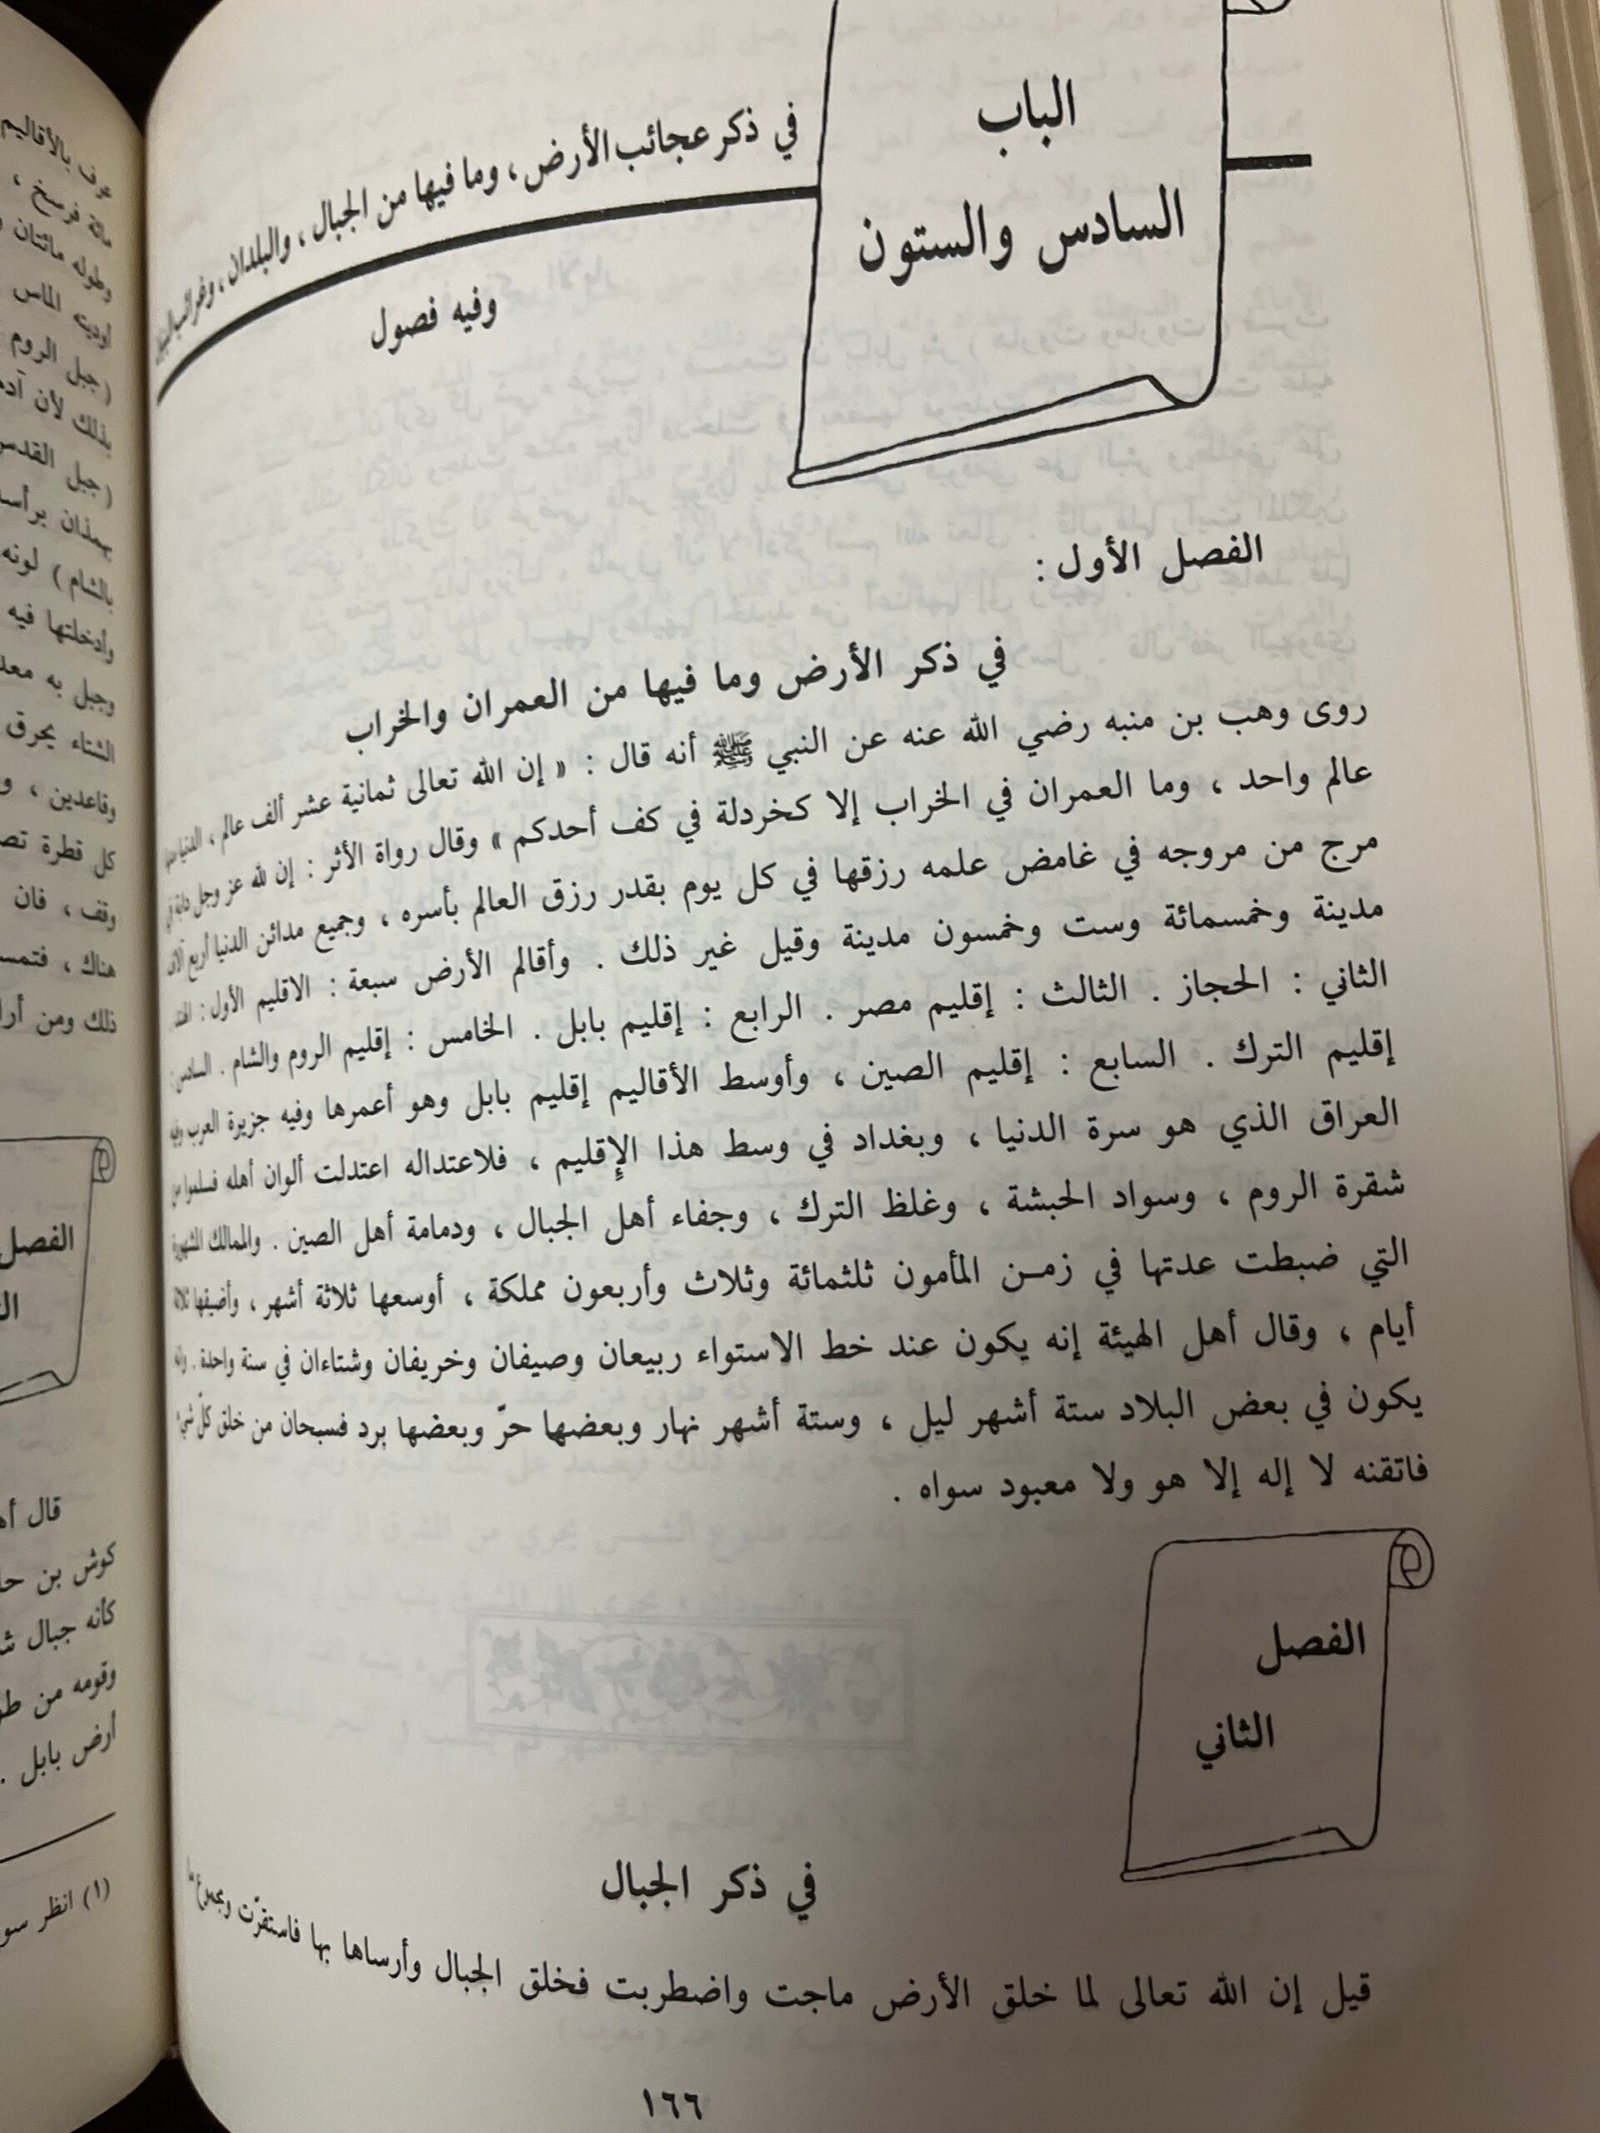 الباب
السادس والستون
في ذكر عجائب الأرض ، وما فيها من الجبال ، والبلدان ، وغرائب
وفيه فصول
الفصل الأول :
في ذكر الأرض وما فيها من العمران والخراب
روى وهب بن منبه رضي الله عنه عن النبي ﷺ أنه قال : « إن الله تعالى ثمانية عشر ألف عالم ، الدنيا منها
عالم واحد ، وما العمران في الخراب إلا كخردلة في كف أحدكم » وقال رواة الأثر : إن لله عز وجل دابة في
مرج من مروجه في غامض علمه رزقها في كل يوم بقدر رزق العالم بأسره ، وجميع مدائن الدنيا أربع آلاف
مدينة وخمسمائة وست وخمسون مدينة وقيل غير ذلك . وأقالم الأرض سبعة : الاقليم الأول : الهند
الثاني : الحجاز . الثالث : إقليم مصر . الرابع : إقليم بابل . الخامس : إقليم الروم والشام . السادس :
إقليم الترك . السابع : إقليم الصين ، وأوسط الأقاليم إقليم بابل وهو أعمرها وفيه جزيرة العرب وفيه
العراق الذي هو سرة الدنيا ، وبغداد في وسط هذا الإقليم ، فلاعتداله اعتدلت ألوان أهله فسلموا من
شقرة الروم ، وسواد الحبشة ، وغلظ الترك ، وجفاء أهل الجبال ، ودمامة أهل الصين . والممالك المشهورة
التي ضبطت عدتها في زمـن المأمون ثلثمائة وثلاث وأربعون مملكة ، أوسعها ثلاثة أشهر ، وأضيقها ثلاثة
أيام ، وقال أهل الهيئة إنه يكون عند خط الاستواء ربيعان وصيفان وخريفان وشتاءان في سنة واحدة . وانه
يكون في بعض البلاد ستة أشهر ليل ، وستة أشهر نهار وبعضها حرّ وبعضها برد فسبحان من خلق كلّ شيء
فاتقنه لا إله إلا هو ولا معبود سواه .
الفصل
الثاني
في ذكر الجبال
قيل إن الله تعالى لما خلق الأرض ماجت واضطربت فخلق الجبال وأرساها بها فاستقرّت ومجموع ما
١٦٦
بالأقاليم
مائة فرسخ ،
وطوله مائتان
أوديته الماس
( جبل الروم
بذلك لأن آدم
( جبل القدس
بهمذان برأسه
بالشام ) لونه
وأدخلتها فيه
وجبل به معد
الشتاء يحرق
وقاعدين ، و
كل قطرة تص
وقف ، فان
هناك ، فتمس
ذلك ومن أرا
الفصل
قال أه
كوش بن حا
كأنه جبال
وقومه من
أرض بابل .
(١) انظر سو